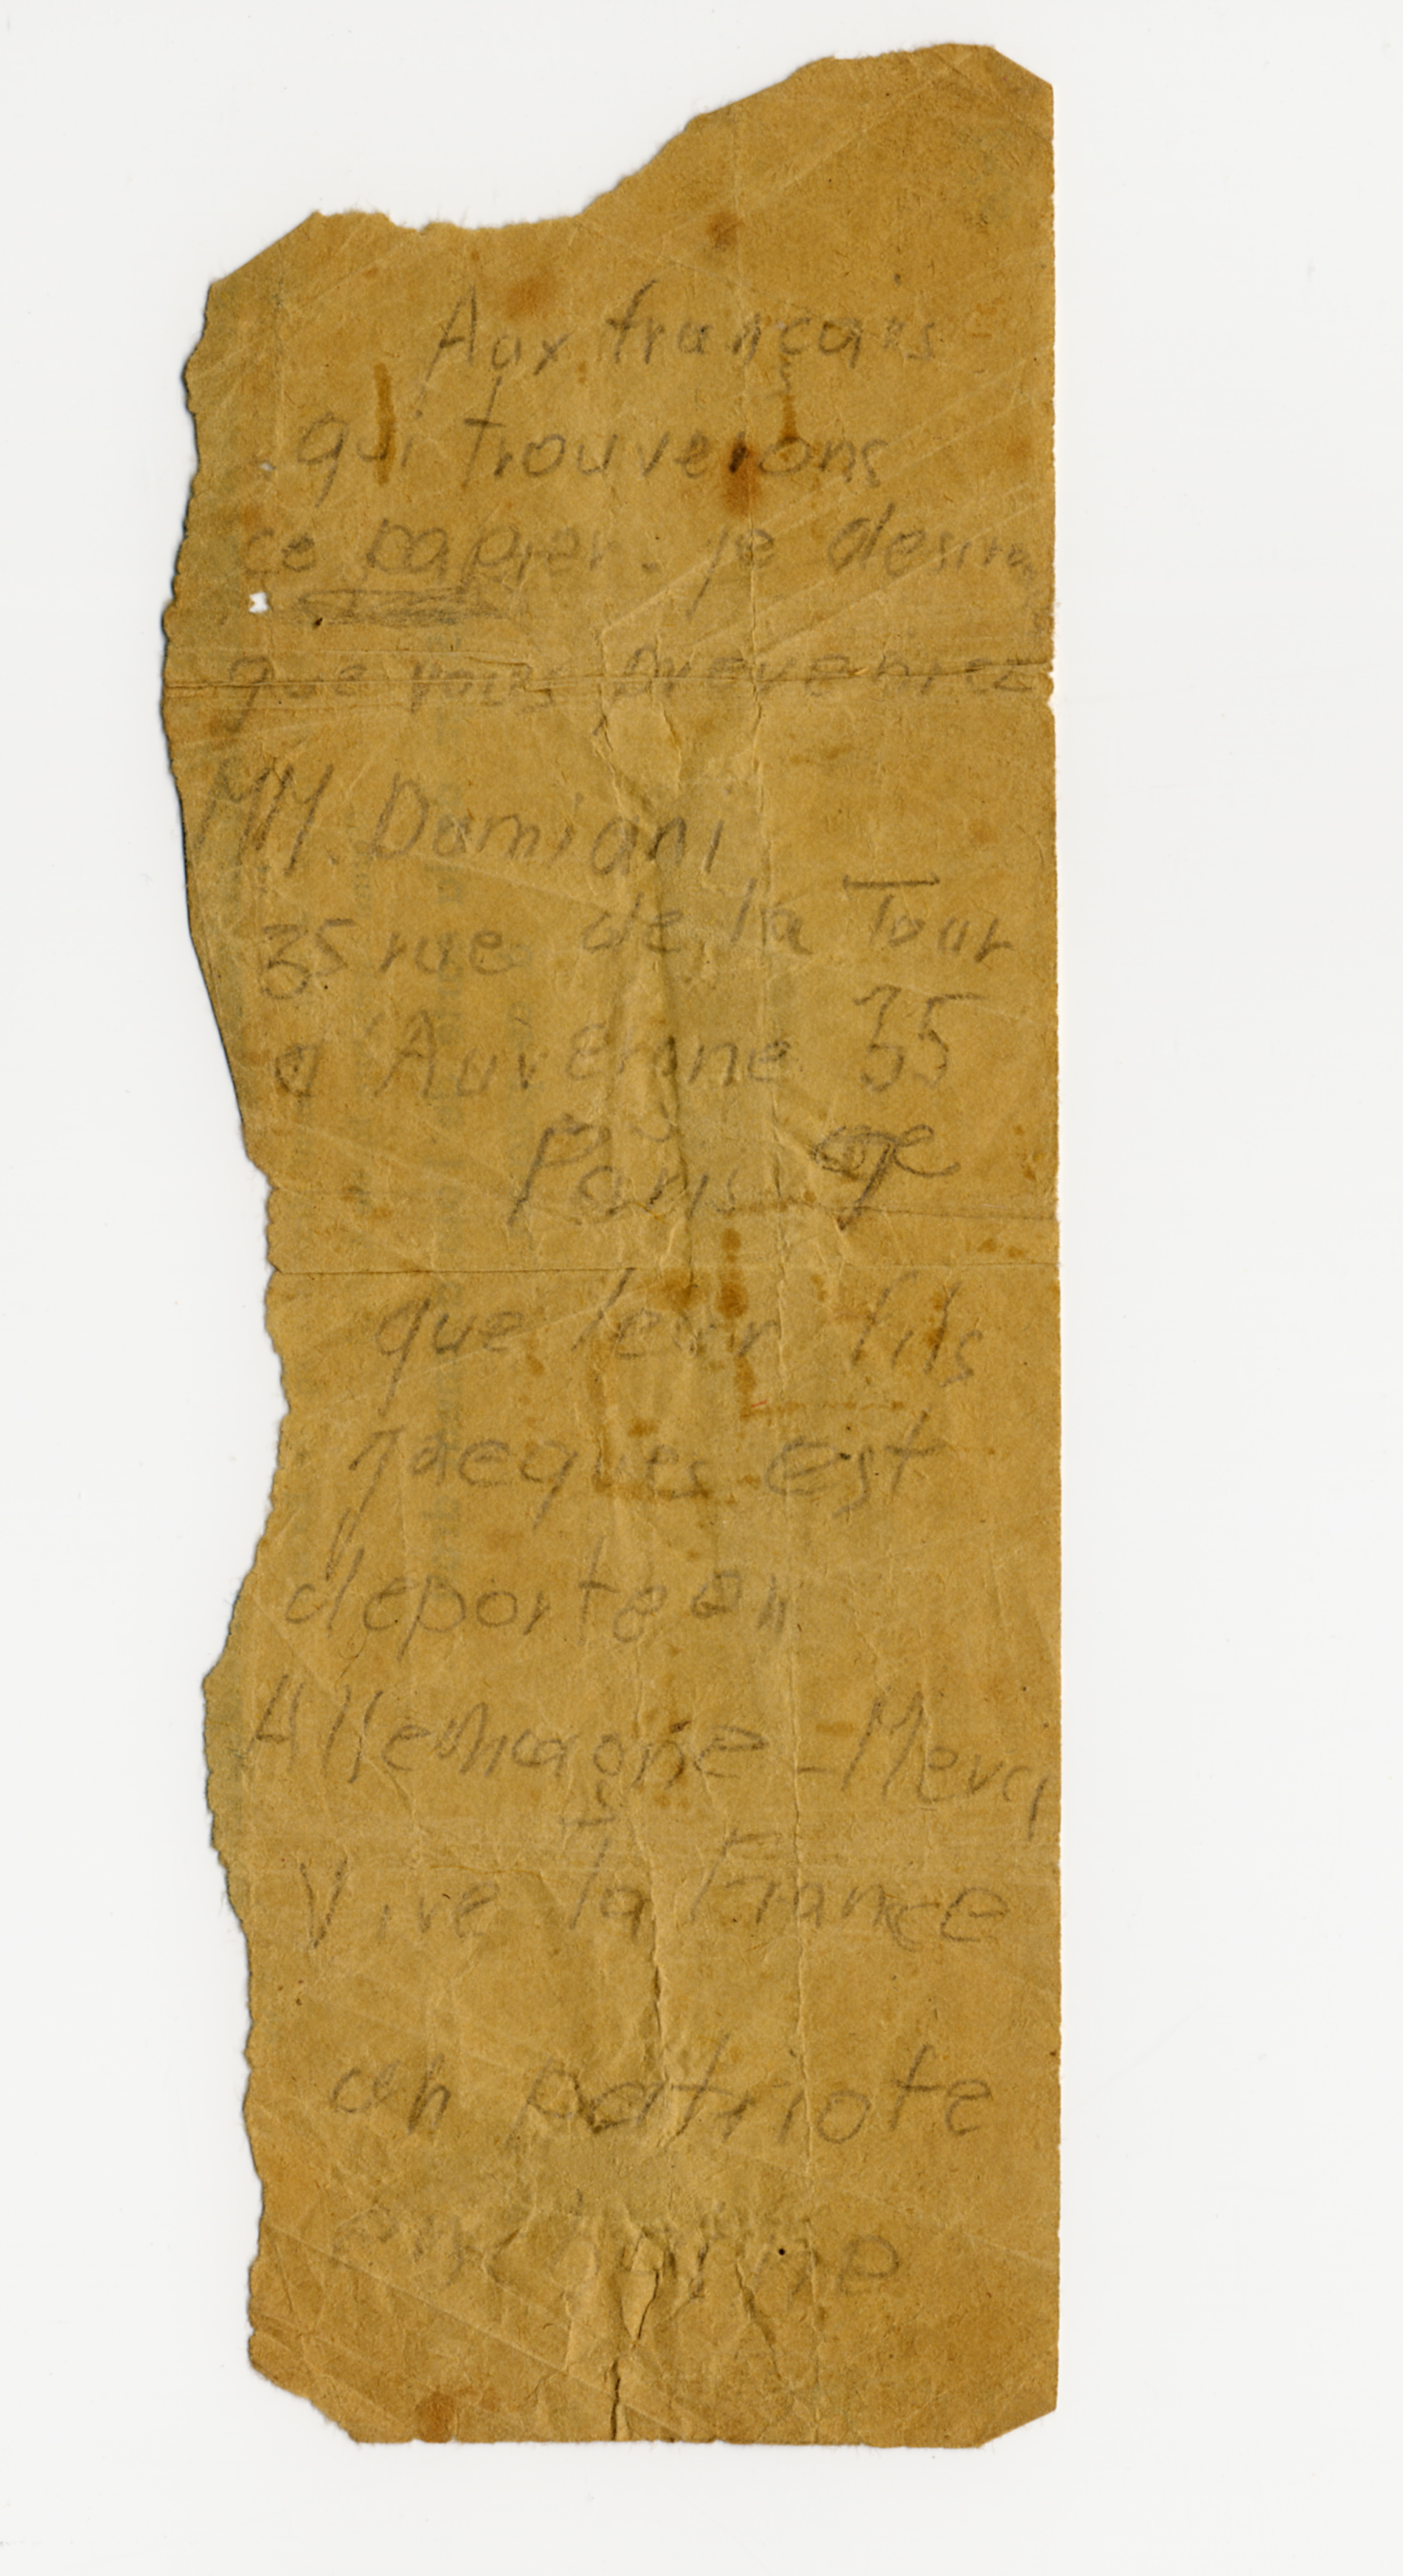 Aux français
qui trouverons
ce papier. je desire
que vous preveniez
MM. Damiani
35 rue de la Tour
d'Auvergne 35
Paris 9e
que leur fils
Jacques est
deporte en
Allemagne - Merci
Vive la France
un patriote